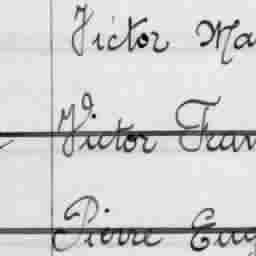 Victor Ma
Victor Fran
Pierre Eug